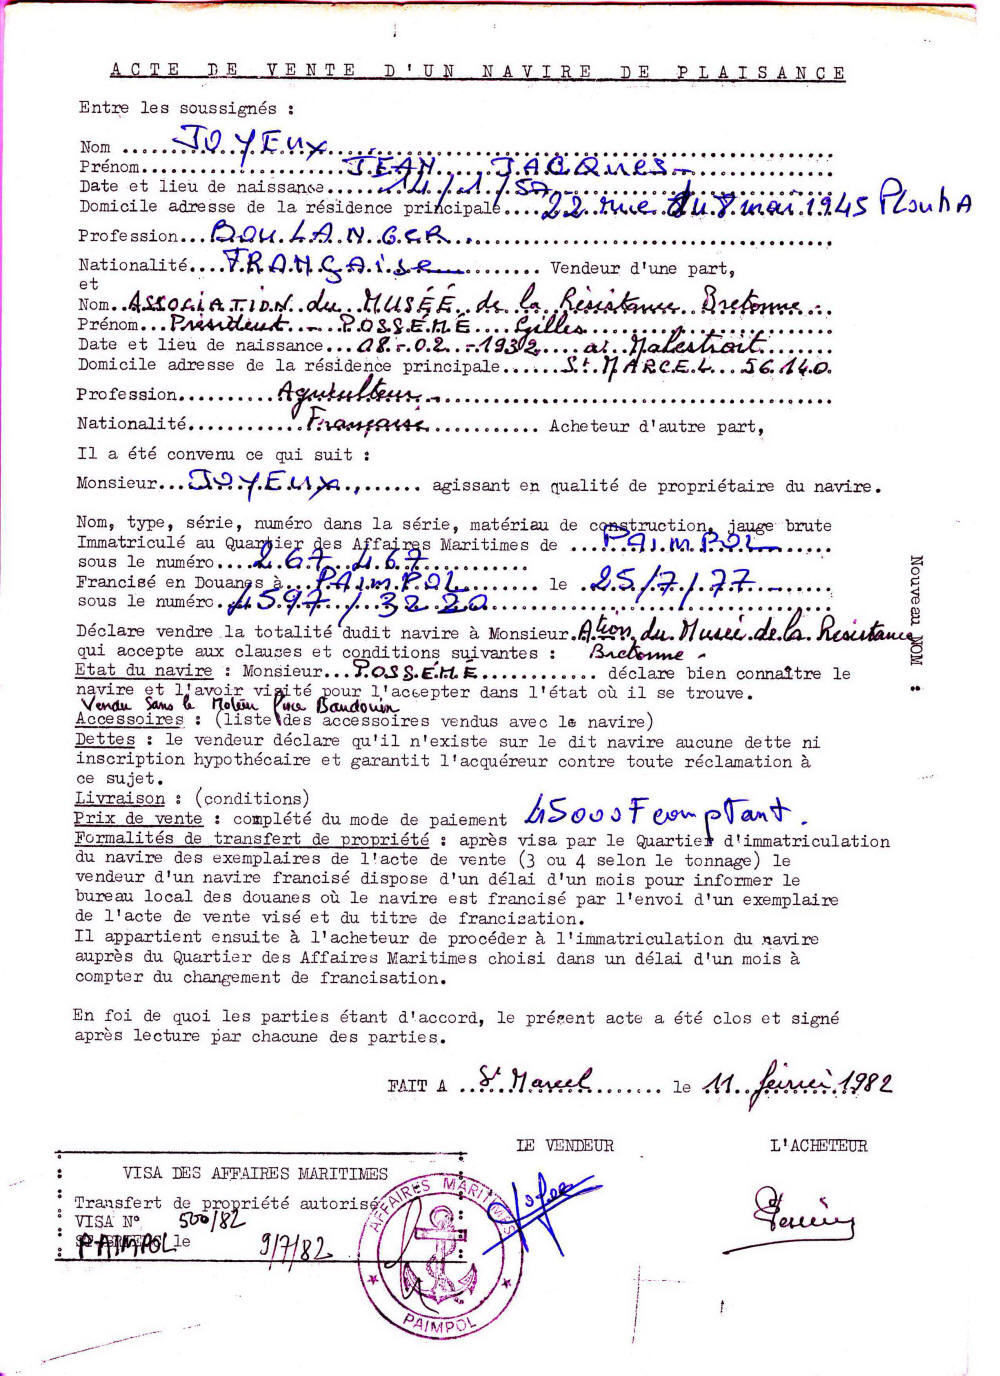 ACTE DE VENTE D'UN NAVIRE DE PLAISANCE
Entre les soussignés :
Nom ......JOYEUX......
Prénom......JEAN JACQUES-......
Date et lieu de naissance......14/1/57......
Domicile adresse de la résidence principale....22 rue du 8 mai 1945 PlouhA
Profession...BOULANGER......
Nationalité....FRANÇAise......... Vendeur d'une part,
et
Nom..ASSOCIATION du MUSÉE de la Résistance Bretonne-.
Prénom...Président - POSSÉMÉ Gilles......
Date et lieu de naissance...08-02-1932 à Malestroit......
Domicile adresse de la résidence principale......St MARCEL 56.140.
Profession..........Agriculteur-......
Nationalité...........Française............ Acheteur d'autre part,
Il a été convenu ce qui suit :
Monsieur...JOYEUX.,...... agissant en qualité de propriétaire du navire.
Nom, type, série, numéro dans la série, matériau de construction, jauge brute
Immatriculé au Quartier des Affaires Maritimes de ...PAIMPOL......
sous le numéro...267 467............
Francisé en Douanes à...PAIMPOL....... le ..25/7/77-......
sous le numéro.4597/3220......
Déclare vendre la totalité dudit navire à Monsieur.Ation du Musée de la Résistance
qui accepte aux clauses et conditions suivantes : Bretonne -
Etat du navire : Monsieur...POSSÉMÉ............ déclare bien connaître le
navire et l'avoir visité pour l'accepter dans l'état où il se trouve.
Vendu Sans le Moteur fixe Baudouin
Accessoires : (liste des accessoires vendus avec le navire)
Dettes : le vendeur déclare qu'il n'existe sur le dit navire aucune dette ni
inscription hypothécaire et garantit l'acquéreur contre toute réclamation à
ce sujet.
Livraison : (conditions)
Prix de vente : complété du mode de paiement 45000F comptant.
Formalités de transfert de propriété : après visa par le Quartier d'immatriculation
du navire des exemplaires de l'acte de vente (3 ou 4 selon le tonnage) le
vendeur d'un navire francisé dispose d'un délai d'un mois pour informer le
bureau local des douanes où le navire est francisé par l'envoi d'un exemplaire
de l'acte de vente visé et du titre de francisation.
Il appartient ensuite à l'acheteur de procéder à l'immatriculation du navire
auprès du Quartier des Affaires Maritimes choisi dans un délai d'un mois à
compter du changement de francisation.
En foi de quoi les parties étant d'accord, le présent acte a été clos et signé
après lecture par chacune des parties.
FAIT A ..St Marcel........ le 11 février 1982
Nouveau NOM :
LE VENDEUR L'ACHETEUR
VISA DES AFFAIRES MARITIMES
Transfert de propriété autorisé
VISA N° 500/82
PAIMPOL le 9/7/82
AFFAIRES MARITIMES
PAIMPOL